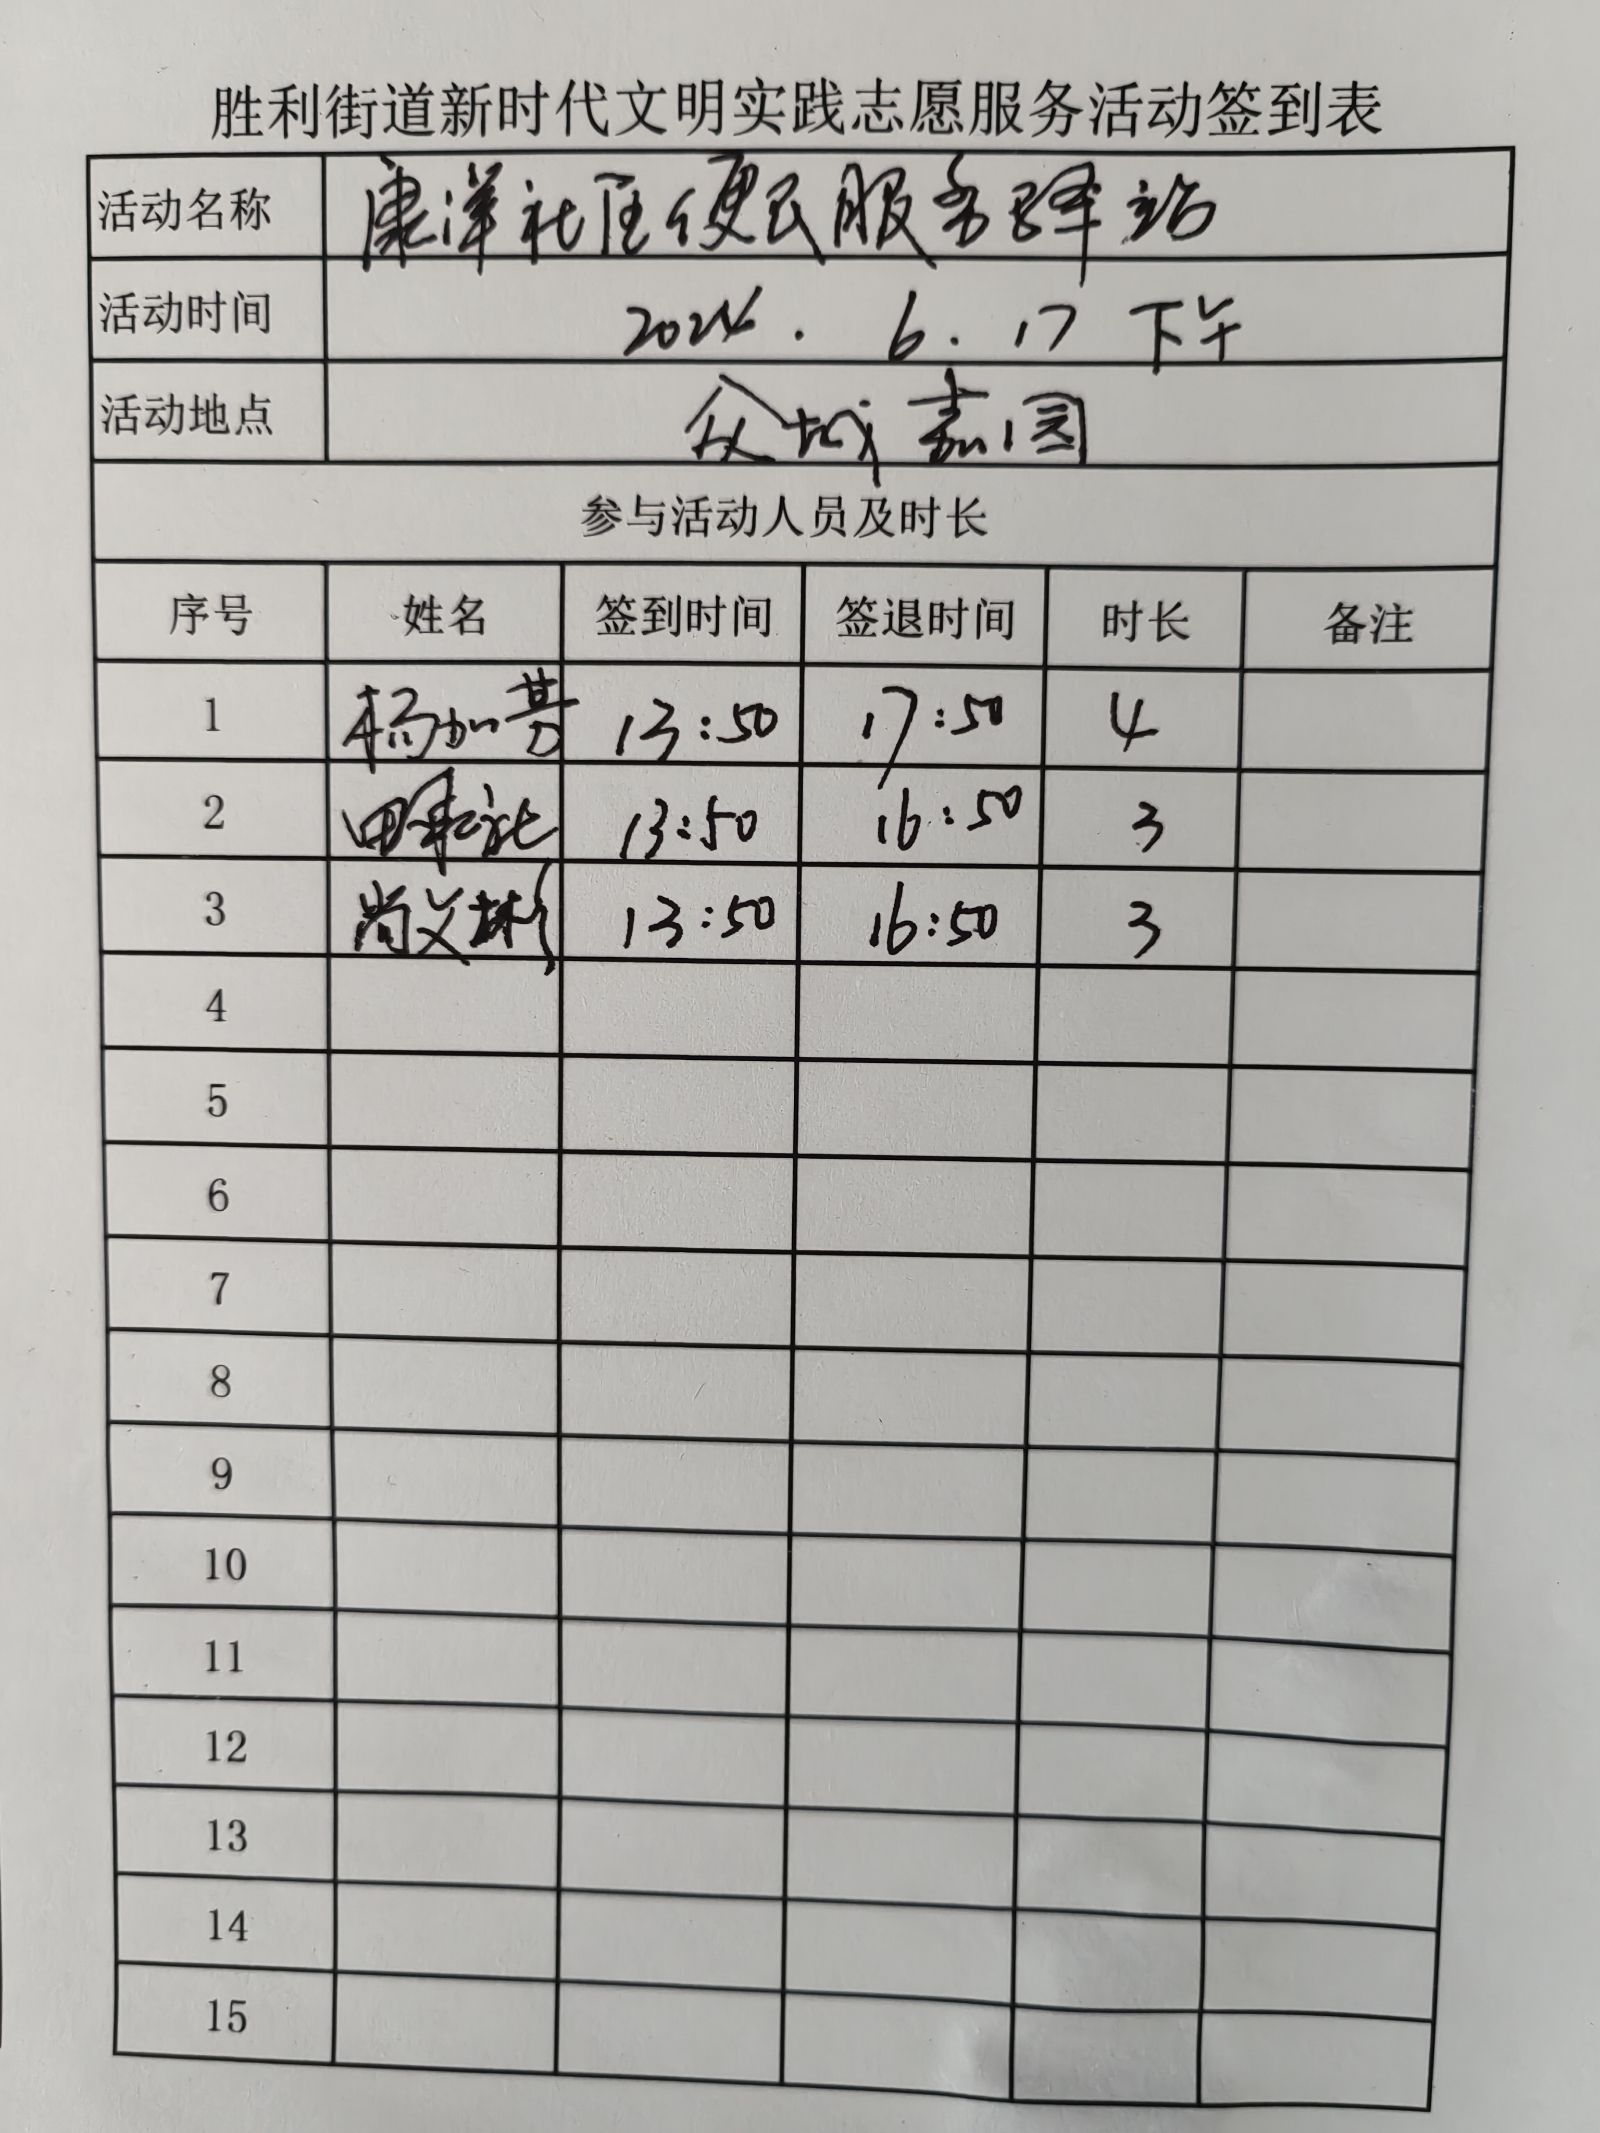 胜利街道新时代文明实践志愿服务活动签到表
活动名称 康洋社区便民服务驿站
活动时间 2024.6.17 下午
活动地点 众城嘉园
参与活动人员及时长
序号 姓名 签到时间 签退时间 时长 备注
1 杨加 13:50 17:50 4
2 田 13:50 16:50 3
3 尚文彬 13:50 16:50 3
4
5
6
7
8
9
10
11
12
13
14
15